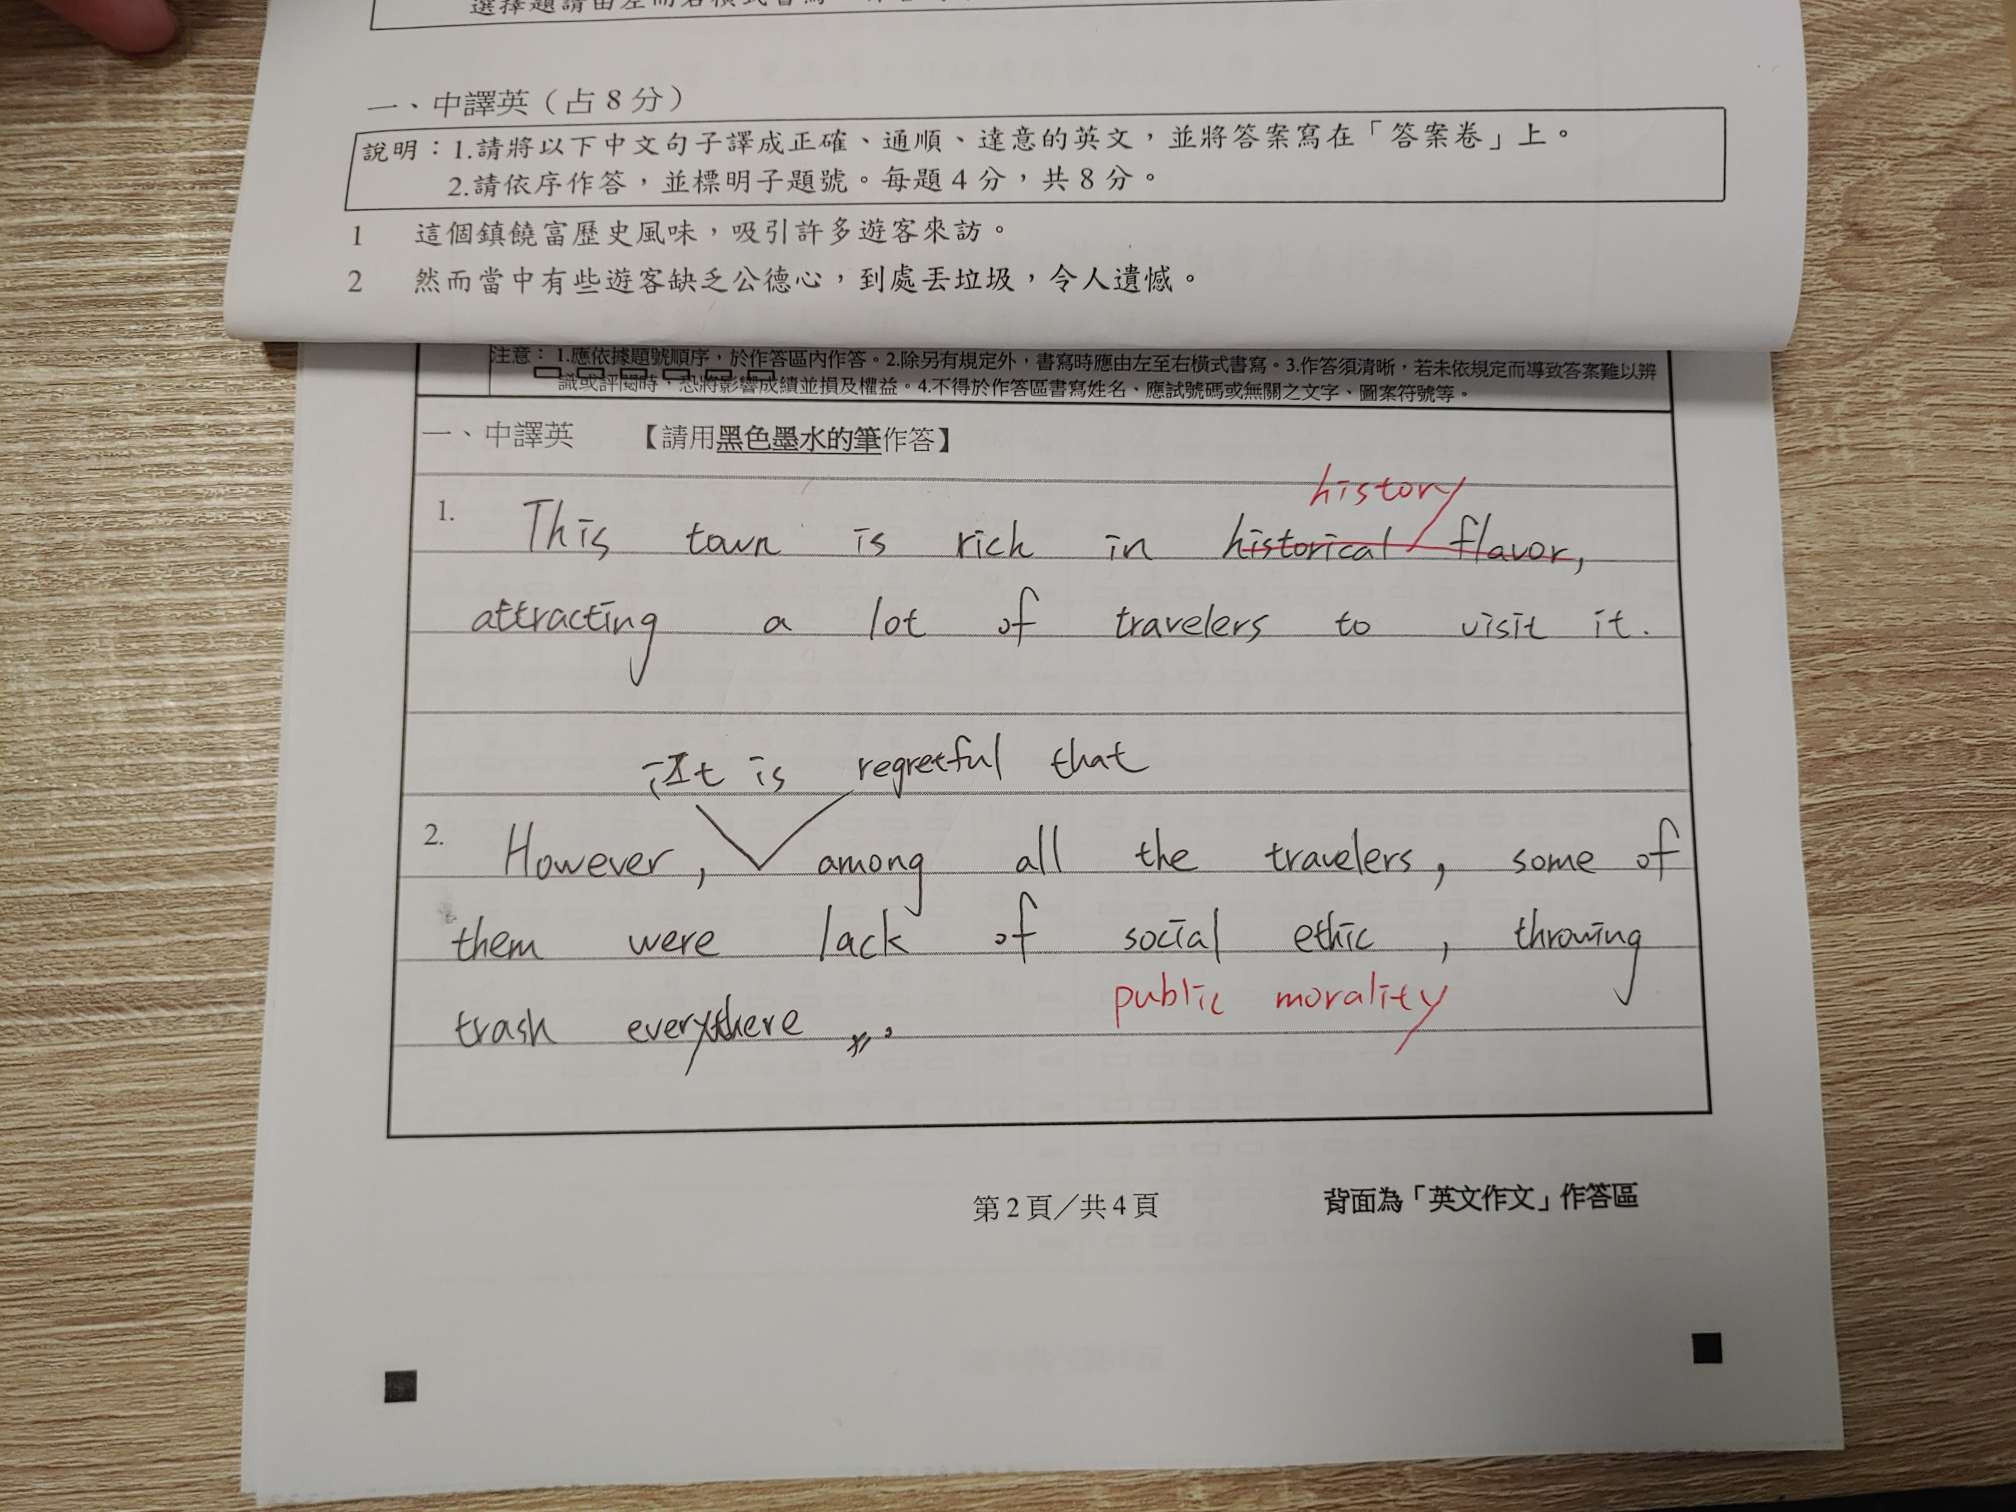 一、中譯英（占8分）
說明：1.請將以下中文句子譯成正確、通順、達意的英文，並將答案寫在「答案卷」上。
2.請依序作答，並標明子題號。每題4分，共8分。
1 這個鎮饒富歷史風味，吸引許多遊客來訪。
2 然而當中有些遊客缺乏公德心，到處丟垃圾，令人遺憾。
注意：1.應依據題號順序，於作答區內作答。2.除另有規定外，書寫時應由左至右橫式書寫。3.作答須清晰，若未依規定而導致答案難以辨
識或評閱時，恐將影響成績並損及權益。4.不得於作答區書寫姓名、應試號碼或無關之文字、圖案符號等。
一、中譯英 【請用黑色墨水的筆作答】
history
1. This town is rich in historical flavor,
attracting a lot of travelers to visit it.
it is regretful that
2. However, among all the travelers, some of
them were lack of social ethic, throwing
public morality
trash everythere
第2頁／共4頁
背面為「英文作文」作答區